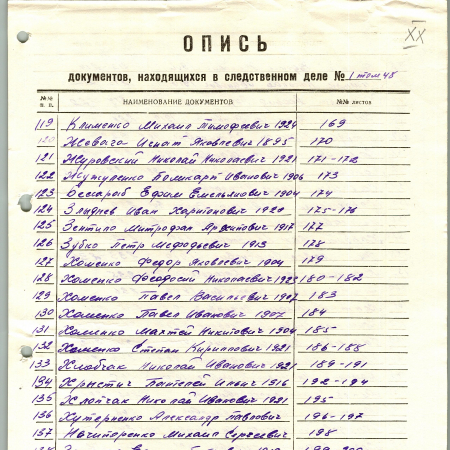 XX
ОПИСЬ
документов, находящихся в следственном деле № 1 том 45
№№ п. п. НАИМЕНОВАНИЕ ДОКУМЕНТОВ №№ листов
119 Клименко Михаил Тимофеевич 1924 169
120 Жевага Игнат Яковлевич 1895 170
121 Журовский Николай Николаевич 1921 171-172
122 Иванович 1906 173
123 Бессараб Ефим Емельянович 1904 174
124 Злыднев Иван Харитонович 1920 175-176
125 Зентило Митрофан Архипович 1917 177
126 Зубко Петр Мефодьевич 1913 178
127 Хоменко Федор Яковлевич 1904 179
128 Хоменко Феодосий Николаевич 1923 180-182
129 Хоменко Павел Васильевич 1907 183
130 Хоменко Павел Иванович 1907 184
131 Хоменко Мактей Никитович 1904 185
132 Хоменко Степан Кириллович 1921 186-188
133 Хлобчак Николай Иванович 1921 189-191
134 Хрыстич Пантелей Ильич 1916 192-194
135 Хлопчак Николай Иванович 1921 195
136 Хутерненко Александр Павлович 196-197
137 Нечипоренко Михаил Сергеевич 198